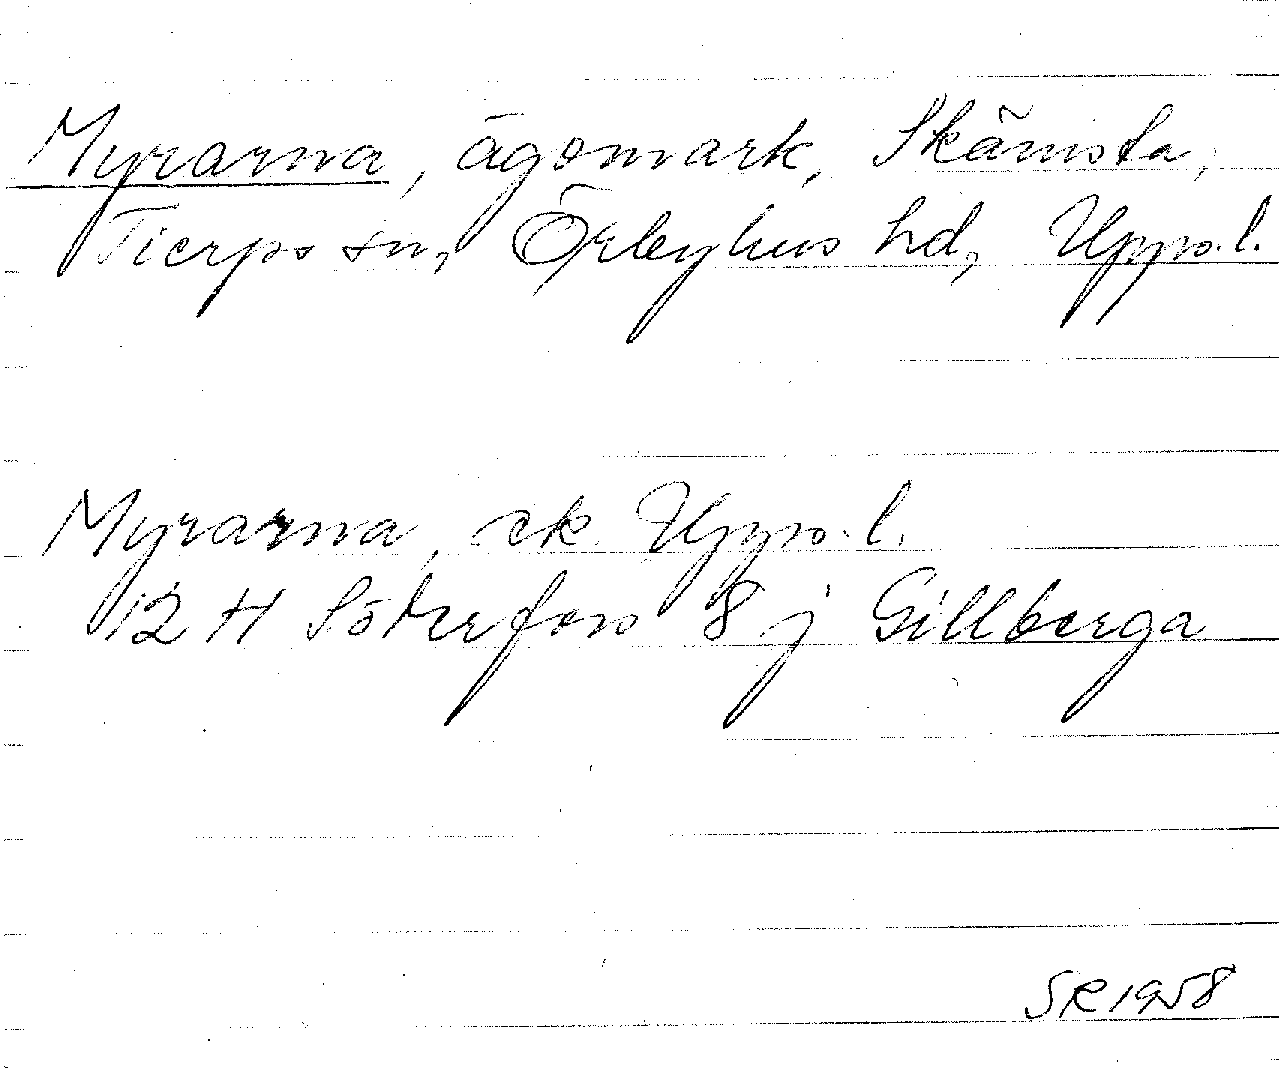 Myrarna, ägomark, Skämsta,
Tierps sn, Örbyhus hd, Upps.l.
Myrarna, ek Upps.l.
12 H Söderfors 8 j Gillberga
SR 1958